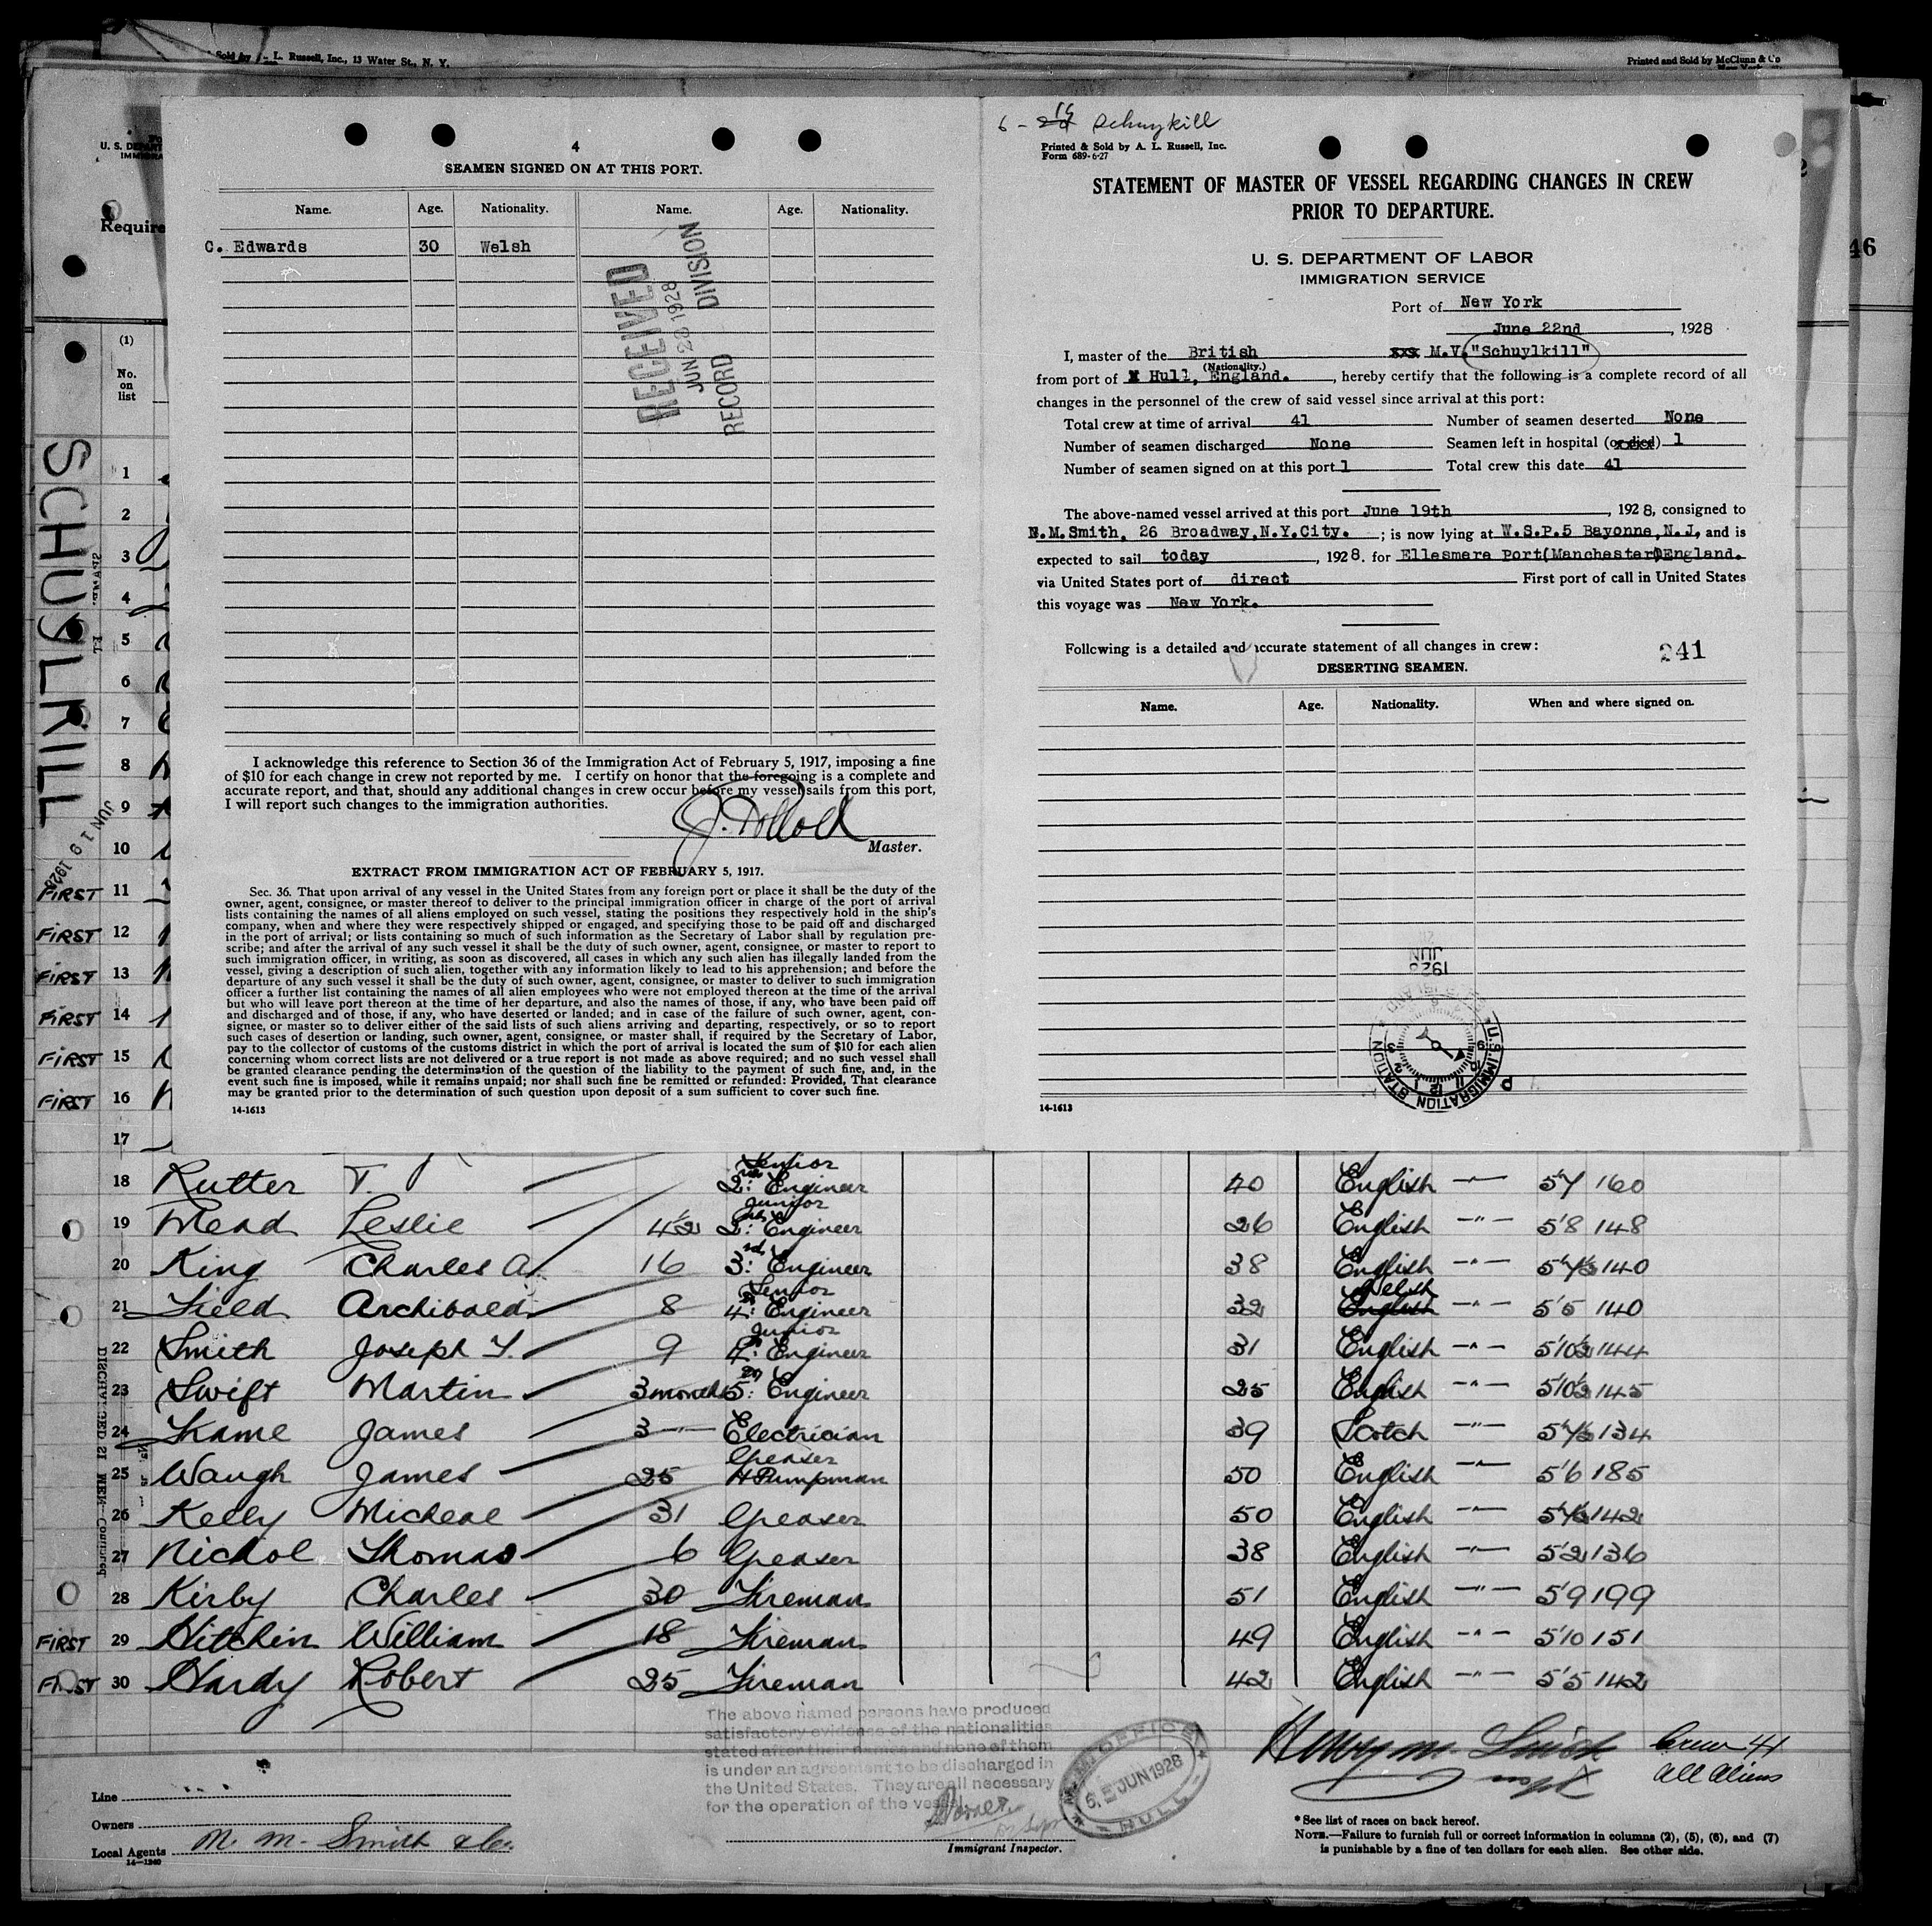 Sold by A. L. Russell, Inc., 13 Water St., N. Y.
Printed and Sold by McClunn & Co
New York
U. S. DEPART
IMMIGRA
Require
46
(1)
No.
on
list
SCHUYLKILL
JUN 19 1928
1
2
3
4
5
6
7
8
9
10
FIRST 11
FIRST 12
FIRST 13
FIRST 14
FIRST 15
FIRST 16
17
4
SEAMEN SIGNED ON AT THIS PORT.
Name. Age. Nationality. Name. Age. Nationality.
C. Edwards 30 Welsh
RECEIVED
JUN 23 1928
RECORD DIVISION
I acknowledge this reference to Section 36 of the Immigration Act of February 5, 1917, imposing a fine
of $10 for each change in crew not reported by me. I certify on honor that the foregoing is a complete and
accurate report, and that, should any additional changes in crew occur before my vessel sails from this port,
I will report such changes to the immigration authorities.
J. Pollock
Master.
EXTRACT FROM IMMIGRATION ACT OF FEBRUARY 5, 1917.
Sec. 36. That upon arrival of any vessel in the United States from any foreign port or place it shall be the duty of the
owner, agent, consignee, or master thereof to deliver to the principal immigration officer in charge of the port of arrival
lists containing the names of all aliens employed on such vessel, stating the positions they respectively hold in the ship's
company, when and where they were respectively shipped or engaged, and specifying those to be paid off and discharged
in the port of arrival; or lists containing so much of such information as the Secretary of Labor shall by regulation pre-
scribe; and after the arrival of any such vessel it shall be the duty of such owner, agent, consignee, or master to report to
such immigration officer, in writing, as soon as discovered, all cases in which any such alien has illegally landed from the
vessel, giving a description of such alien, together with any information likely to lead to his apprehension; and before the
departure of any such vessel it shall be the duty of such owner, agent, consignee, or master to deliver to such immigration
officer a further list containing the names of all alien employees who were not employed thereon at the time of the arrival
but who will leave port thereon at the time of her departure, and also the names of those, if any, who have been paid off
and discharged and of those, if any, who have deserted or landed; and in case of the failure of such owner, agent, con-
signee, or master so to deliver either of the said lists of such aliens arriving and departing, respectively, or so to report
such cases of desertion or landing, such owner, agent, consignee, or master shall, if required by the Secretary of Labor,
pay to the collector of customs of the customs district in which the port of arrival is located the sum of $10 for each alien
concerning whom correct lists are not delivered or a true report is not made as above required; and no such vessel shall
be granted clearance pending the determination of the question of the liability to the payment of such fine, and, in the
event such fine is imposed, while it remains unpaid; nor shall such fine be remitted or refunded: Provided, That clearance
may be granted prior to the determination of such question upon deposit of a sum sufficient to cover such fine.
14-1613
6 - 19 Schuykill
Printed & Sold by A. L. Russell, Inc.
Form 689-6-27
STATEMENT OF MASTER OF VESSEL REGARDING CHANGES IN CREW
PRIOR TO DEPARTURE.
U. S. DEPARTMENT OF LABOR
IMMIGRATION SERVICE
Port of New York
June 22nd, 1928
I, master of the British xxx M.V. "Schuylkill"
(Nationality.)
from port of Hull, England., hereby certify that the following is a complete record of all
changes in the personnel of the crew of said vessel since arrival at this port:
Total crew at time of arrival 41 Number of seamen deserted None
Number of seamen discharged None Seamen left in hospital (or died) 1
Number of seamen signed on at this port 1 Total crew this date 41
The above-named vessel arrived at this port June 19th, 1928, consigned to
N.M.Smith, 26 Broadway, N.Y.City. ; is now lying at W.S.P.5 Bayonne, N.J, and is
expected to sail today, 1928. for Ellesmere Port(Manchester)England.
via United States port of direct First port of call in United States
this voyage was New York.
Following is a detailed and accurate statement of all changes in crew:
241
DESERTING SEAMEN.
Name. Age. Nationality. When and where signed on.
JUN
1928
U.S. IMMIGRATION STATION
14-1613
18 Rutter T. Senior 2nd Engineer 40 English -"- 5'7 160
19 Mead Leslie 4½ Junior 2nd Engineer 26 English -"- 5'8 148
20 King Charles A. 16 3rd Engineer 38 English 5'7½ 140
21 Field Archibald 8 Senior 4th Engineer 32 English Welsh -"- 5'5 140
22 Smith Joseph Y. 9 Junior 4th Engineer 31 English -"- 5'10½ 144
23 Swift Martin 3 months 5th Engineer 25 English -"- 5'10½ 145
24 Kame James 3 -"- Electrician 39 Scotch -"- 5'7½ 134
25 Waugh James 25 Greaser & Pumpman 50 English -"- 5'6 185
26 Kelly Micheal 31 Greaser 50 English -"- 142
27 Nichol Thomas 6 Greaser 38 English -"- 5'2 136
28 Kirby Charles 30 Fireman 51 English -"- 5'9 199
FIRST 29 Hitchin William 18 Fireman 49 English -"- 5'10 151
FIRST 30 Hardy Robert 25 Fireman 42 English -"- 5'5 142
The above named persons have produced
satisfactory evidence of the nationalities
stated after their names and none of them
is under an agreement to be discharged in
the United States. They are all necessary
for the operation of the vessel.
Immigrant Inspector.
M. M. OFFICE
5 JUN 1928
HULL
Crew 41
All Aliens
Line
Owners
Local Agents M. M. Smith & Co.
14-1240
* See list of races on back hereof.
NOTE.—Failure to furnish full or correct information in columns (2), (5), (6), and (7)
is punishable by a fine of ten dollars for each alien. See other side.